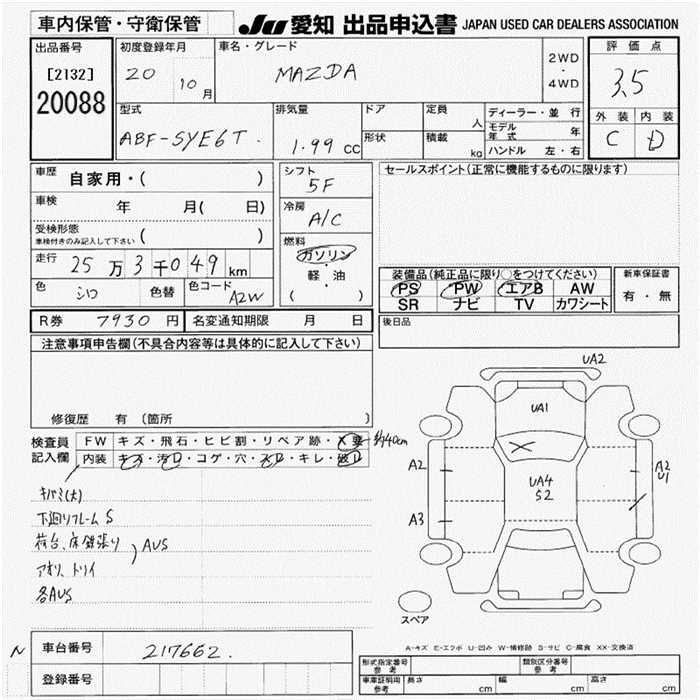 車内保管・守衛保管 JU 愛知 出品申込書 JAPAN USED CAR DEALERS ASSOCIATION
出品番号 [2132] 20088
初度登録年月 20 10月
車名・グレード MAZDA
2WD・4WD
評価点 3.5
外装 内装
C D
型式 ABF-SYE6T.
排気量 1.99 cc
ドア 定員 人
形状 積載 kg
ディーラー・並行
モデル年式 年
ハンドル 左・右
車歴 自家用・( )
車検 年 月( 日)
受検形態 車検付きのみ記入して下さい ( )
走行 25万3千049km
色 シロ 色替 色コード A2W
シフト 5F
冷房 A/C
燃料 ガソリン・軽・油
( )
セールスポイント(正常に機能するものに限ります)
装備品(純正品に限り○をつけてください)
PS PW エアB AW
SR ナビ TV カワシート
新車保証書 有・無
R券 7930円 名変通知期限 月 日
後日品
注意事項申告欄(不具合内容等は具体的に記入して下さい)
修復歴 有 (箇所 )
検査員記入欄
FW キズ・飛石・ヒビ割・リペア跡・X要 約40cm
内装 キズ・汚レ・コゲ・穴・スレ・キレ・破レ
キバミ(大)
下廻りフレームS
荷台、床鉄張り
アオリ、トリイ
AUS
各AUS
UA2
UA1
A2
UA4
S2
A2
U1
A3
スペア
A-キズ E-エクボ U-凹み W-補修跡 S-サビ C-腐食 XX-交換済
N 車台番号 217662.
登録番号
形式指定番号 参考 類別区分番号 参考
車庫証明用 参考 長さ cm 幅 cm 高さ cm